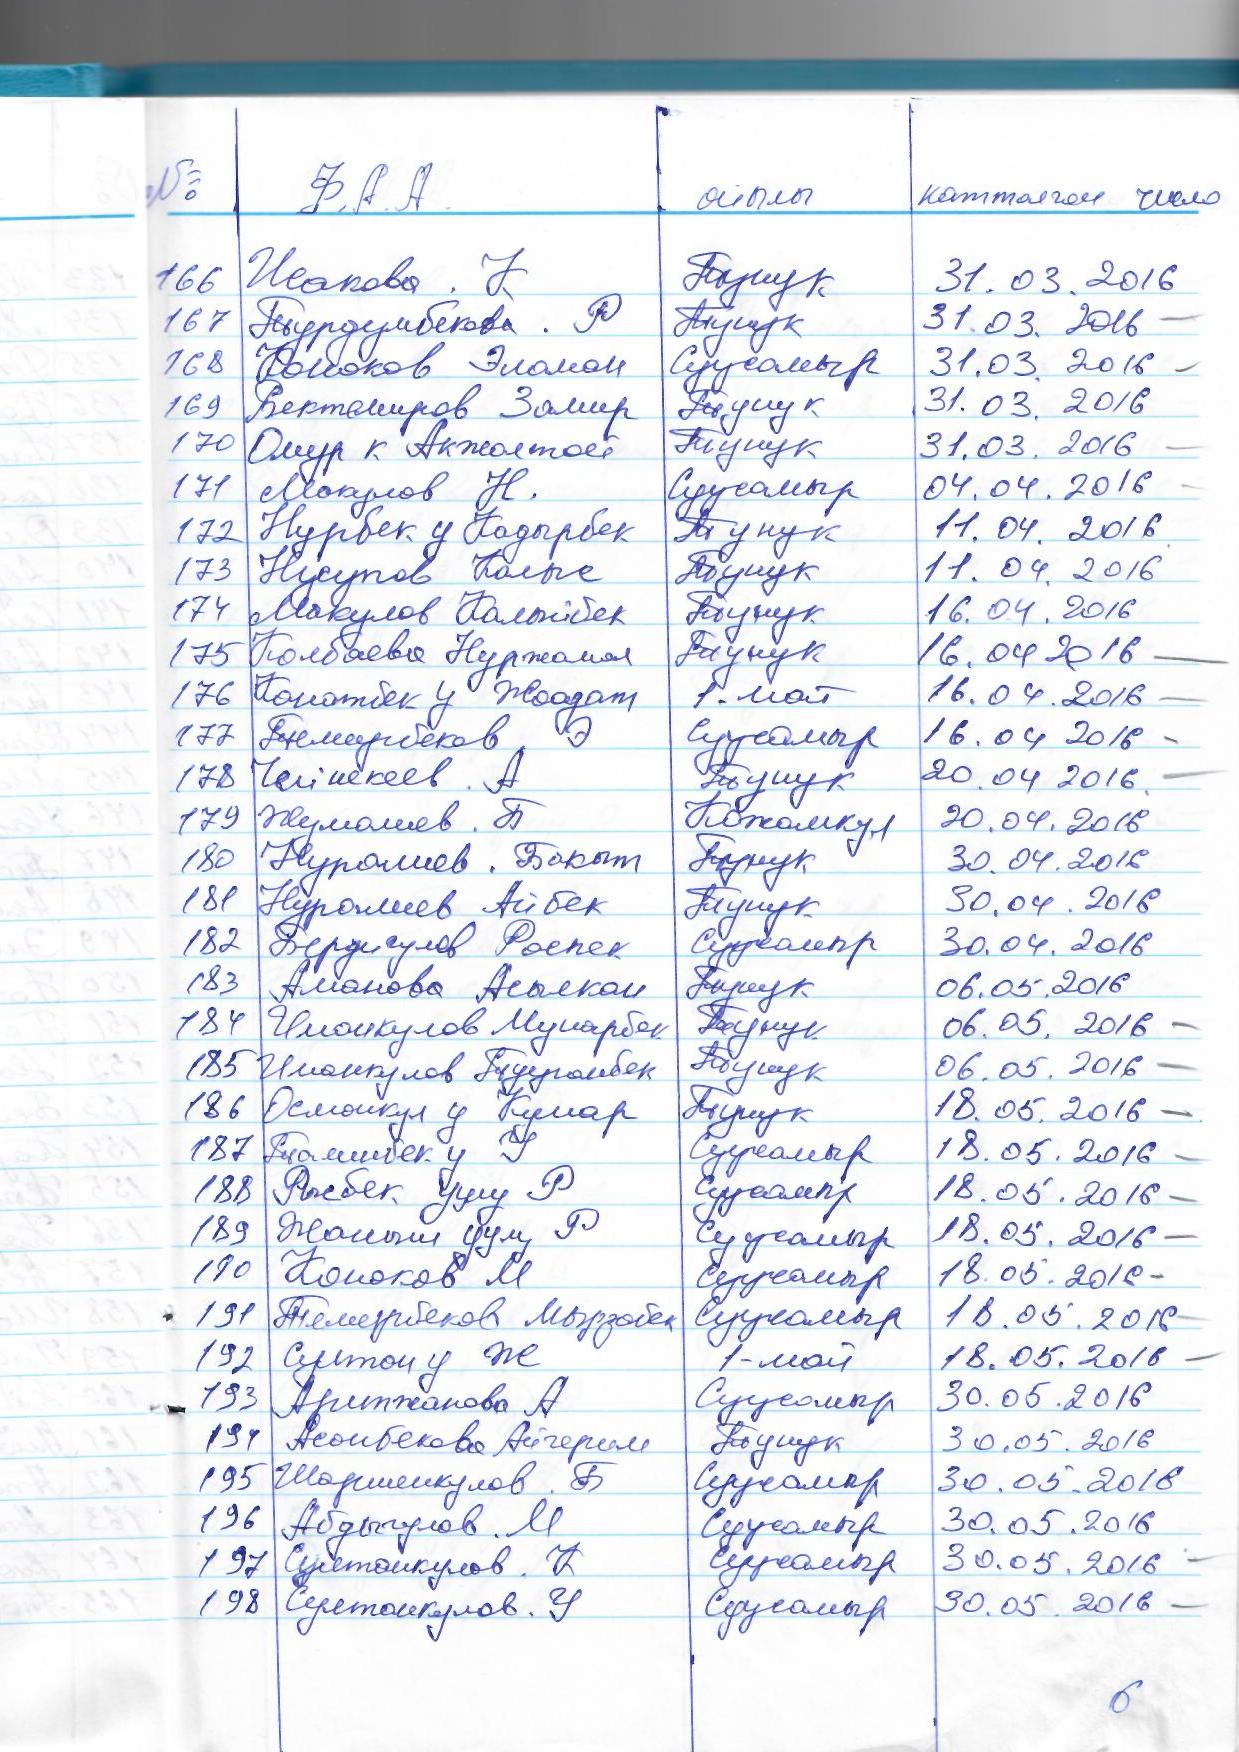 № Ф.А.А. айылы катталган число
166 Исакова . К Тунук 31.03.2016
167 Турдумбекова . Р Тунук 31.03.2016 —
168 Коноков Эламан Суусамыр 31.03.2016 —
169 Бектемиров Замир Тунук 31.03.2016
170 Омур к Акжолтой Тунук 31.03.2016 —
171 Макулов Н. Суусамыр 04.04.2016 -
172 Нурбек у Кадырбек Тунук 11.04.2016
173 Нусупов Калыс Тунук 11.04.2016
174 Макулов Калыйбек Тунук 16.04.2016
175 Колбаева Нуржамал Тунук 16.04 2016 —
176 Канатбек у Жоодат 1-май 16.04.2016 —
177 Темирбеков Э Суусамыр 16.04 2016 -
178 Чейшекеев . А Тунук 20.04 2016. —
179 Жумалиев . Б Кожомкул 20.04.2016
180 Нуралиев . Бакыт Тунук 30.04.2016
181 Нуралиев Айбек Тунук 30.04.2016
182 Бердигулов Роспек Суусамыр 30.04.2016
183 Аманова Асылкан Тунук 06.05.2016
184 Иманкулов Мунарбек Тунук 06.05.2016 —
185 Иманкулов Турганбек Тунук 06.05.2016 —
186 Осмонкул у Кумар Тунук 18.05.2016 —
187 Таминбек у У Суусамыр 18.05.2016 —
188 Рысбек уулу Р Суусамыр 18.05.2016 —
189 Жаныш уулу Р Суусамыр 18.05.2016 —
190 Коноков М Суусамыр 18.05.2016 -
191 Темирбеков Мырзабек Суусамыр 18.05.2016 —
192 Султан у Ж 1-май 18.05.2016 —
193 Арипжанова А Суусамыр 30.05.2016
194 Асанбекова Айгерим Тунук 30.05.2016
195 Шаршенкулов . Б Суусамыр 30.05.2016
196 Абдыкулов . М Суусамыр 30.05.2016
197 Султанкулов . К Суусамыр 30.05.2016 —
198 Султанкулов . У Суусамыр 30.05.2016 —
6